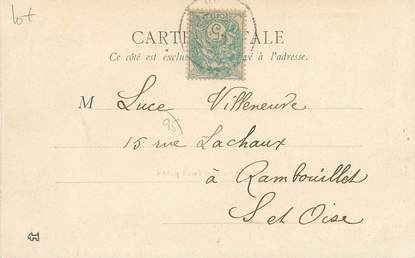 lot
CARTE POSTALE
Ce côté est exclusivement réservé à l'adresse.
M Luce Villeneuve
95
15 rue Lachaux
à Rambouillet
S et Oise